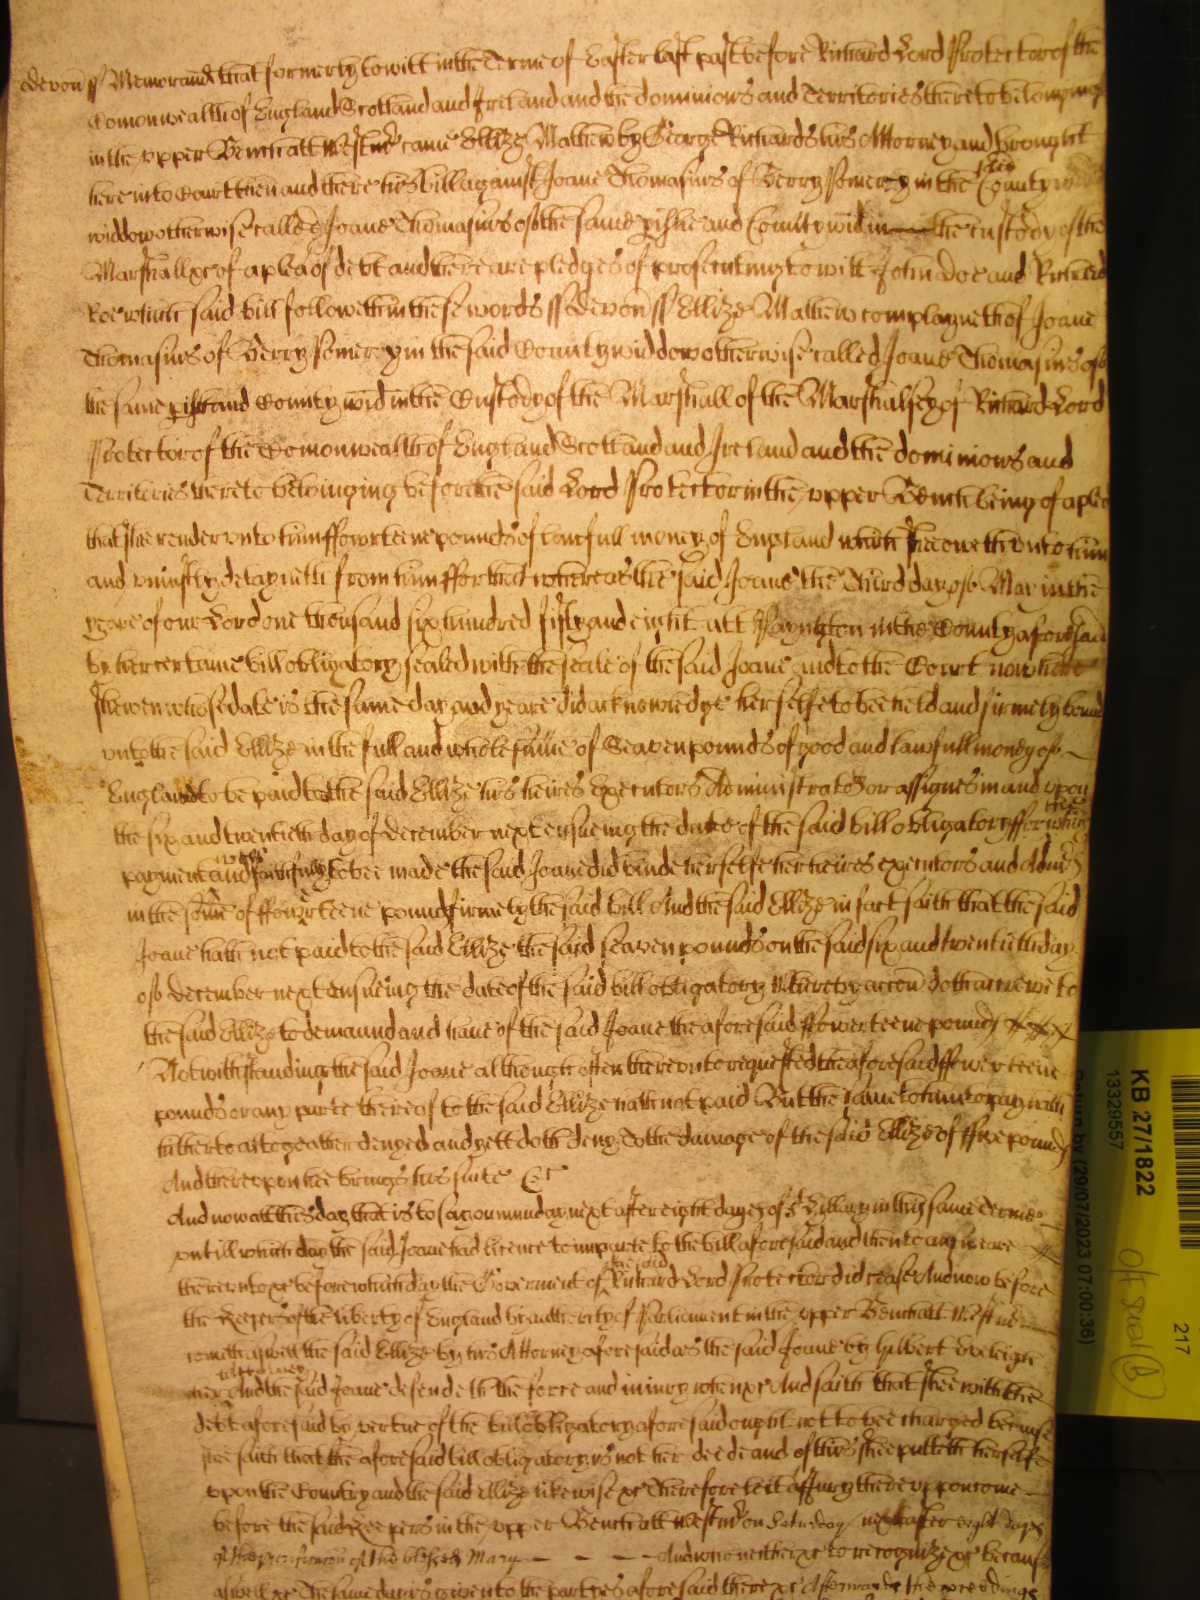 Devon ss Memorand that formerly to witt in the Terme of Easter last past before Richard Lord Protector of the
Comonwealth of England Scotland and Ireland and the dominions and Territories thereto belonging
in the upper Bench att Westmr came Ellize Mathew by George Richards his Attorney and brought
here into Court then and there his bill against Joane Thomasins of Berry Pomerey in the said County
widdow otherwise called Joane Thomasins of the same pishe and County wid in the custody of the
Marshall &c of a plea of debt and there are pledges of prosecuting to witt John Doe and Richard
Roe which said bill followeth in these words ss Devon ss Ellize Mathew complayneth of Joane
Thomasins of Berry Pomerey in the said County widdow otherwise called Joane Thomasins of
the same pish and County wid in the Custody of the Marshall of the Marshalsey of Richard Lord
Protector of the Comonwealth of England Scotland and Ireland and the dominions and
Territories thereto belonging before the said Lord Protector in the upper Bench being of a plea
that she render unto him ffowerteene pounds of lawfull money of England which shee oweth unto him
and uniustly detayneth from him ffor that whereas the said Joane the Third day of May in the
yeare of our Lord one thousand six hundred fifty and eight att Paynton in the County aforesaid
by her certaine bill obligatory sealed with the seale of the said Joane and to the Court now here
shewen whose date is the same day and yeare did acknowledge her selfe to bee held and firmely bound
unto the said Ellize in the full and whole sume of Seaven pounds of good and lawfull money of
England to be paid to the said Ellize his heires Executors Administrators or assignes in and upon
the six and twentieth day of December next ensueing the date of the said bill obligatory ffor which
payment well and faithfully to bee made the said Joane did binde her selfe her heires executors and Admrs
in the some of ffowerteene pounds firmely by the said bill And the said Ellize in fact saith that the said
Joane hath not paid to the said Ellize the said seaven pounds on the said six and twentieth day
of December next ensueing the date of the said bill obligatory Whereby accon doth accrewe to
the said Ellize to demaund and have of the said Joane the aforesaid ffowerteene pounds
Notwithstanding the said Joane although often thereunto requested the aforesaid ffowerteene
pounds or any parte thereof to the said Ellize hath not paid But the same to him to pay hath
hitherto altogeather denyed and yett doth deny To the damage of the said Ellize of ffive pounds
And thereupon hee brings his suite &c
And now att this day that is to say on munday next after eight dayes of St Hillary in this same Terme
untill which day the said Joane had licence to imparle to the bill aforesaid and then to answeare
thereunto &c before which day the Goverment of the said Richard Lord Protector did cease And now before
the Keepers of the liberty of England by authority of Parliament in the upper Bench att Westmr
cometh aswell the said Ellize by his Attorney aforesaid as the said Joane by Gilbert Eveleigh
her Attorney And the said Joane defendeth the force and iniury when &c And saith that shee with the
debt aforesaid by vertue of the bill obligatory aforesaid ought not to bee charged because
shee saith that the aforesaid bill obligatory is not her deede and of this shee putteth her selfe
upon the Country and the said Ellize likewise &c Therefore let a Jury thereuppon come
before the said Keepers in the upper Bench att Westmr on Saturday next after eight dayes
of the purificacon of the blessed Mary And who neither &c to recognize &c because
aswell &c The same day is given to the partyes aforesaid there &c Afterwards the proceedings
KB 27/1822
13329557
Return by (29/07/2023 07:00:36)
217